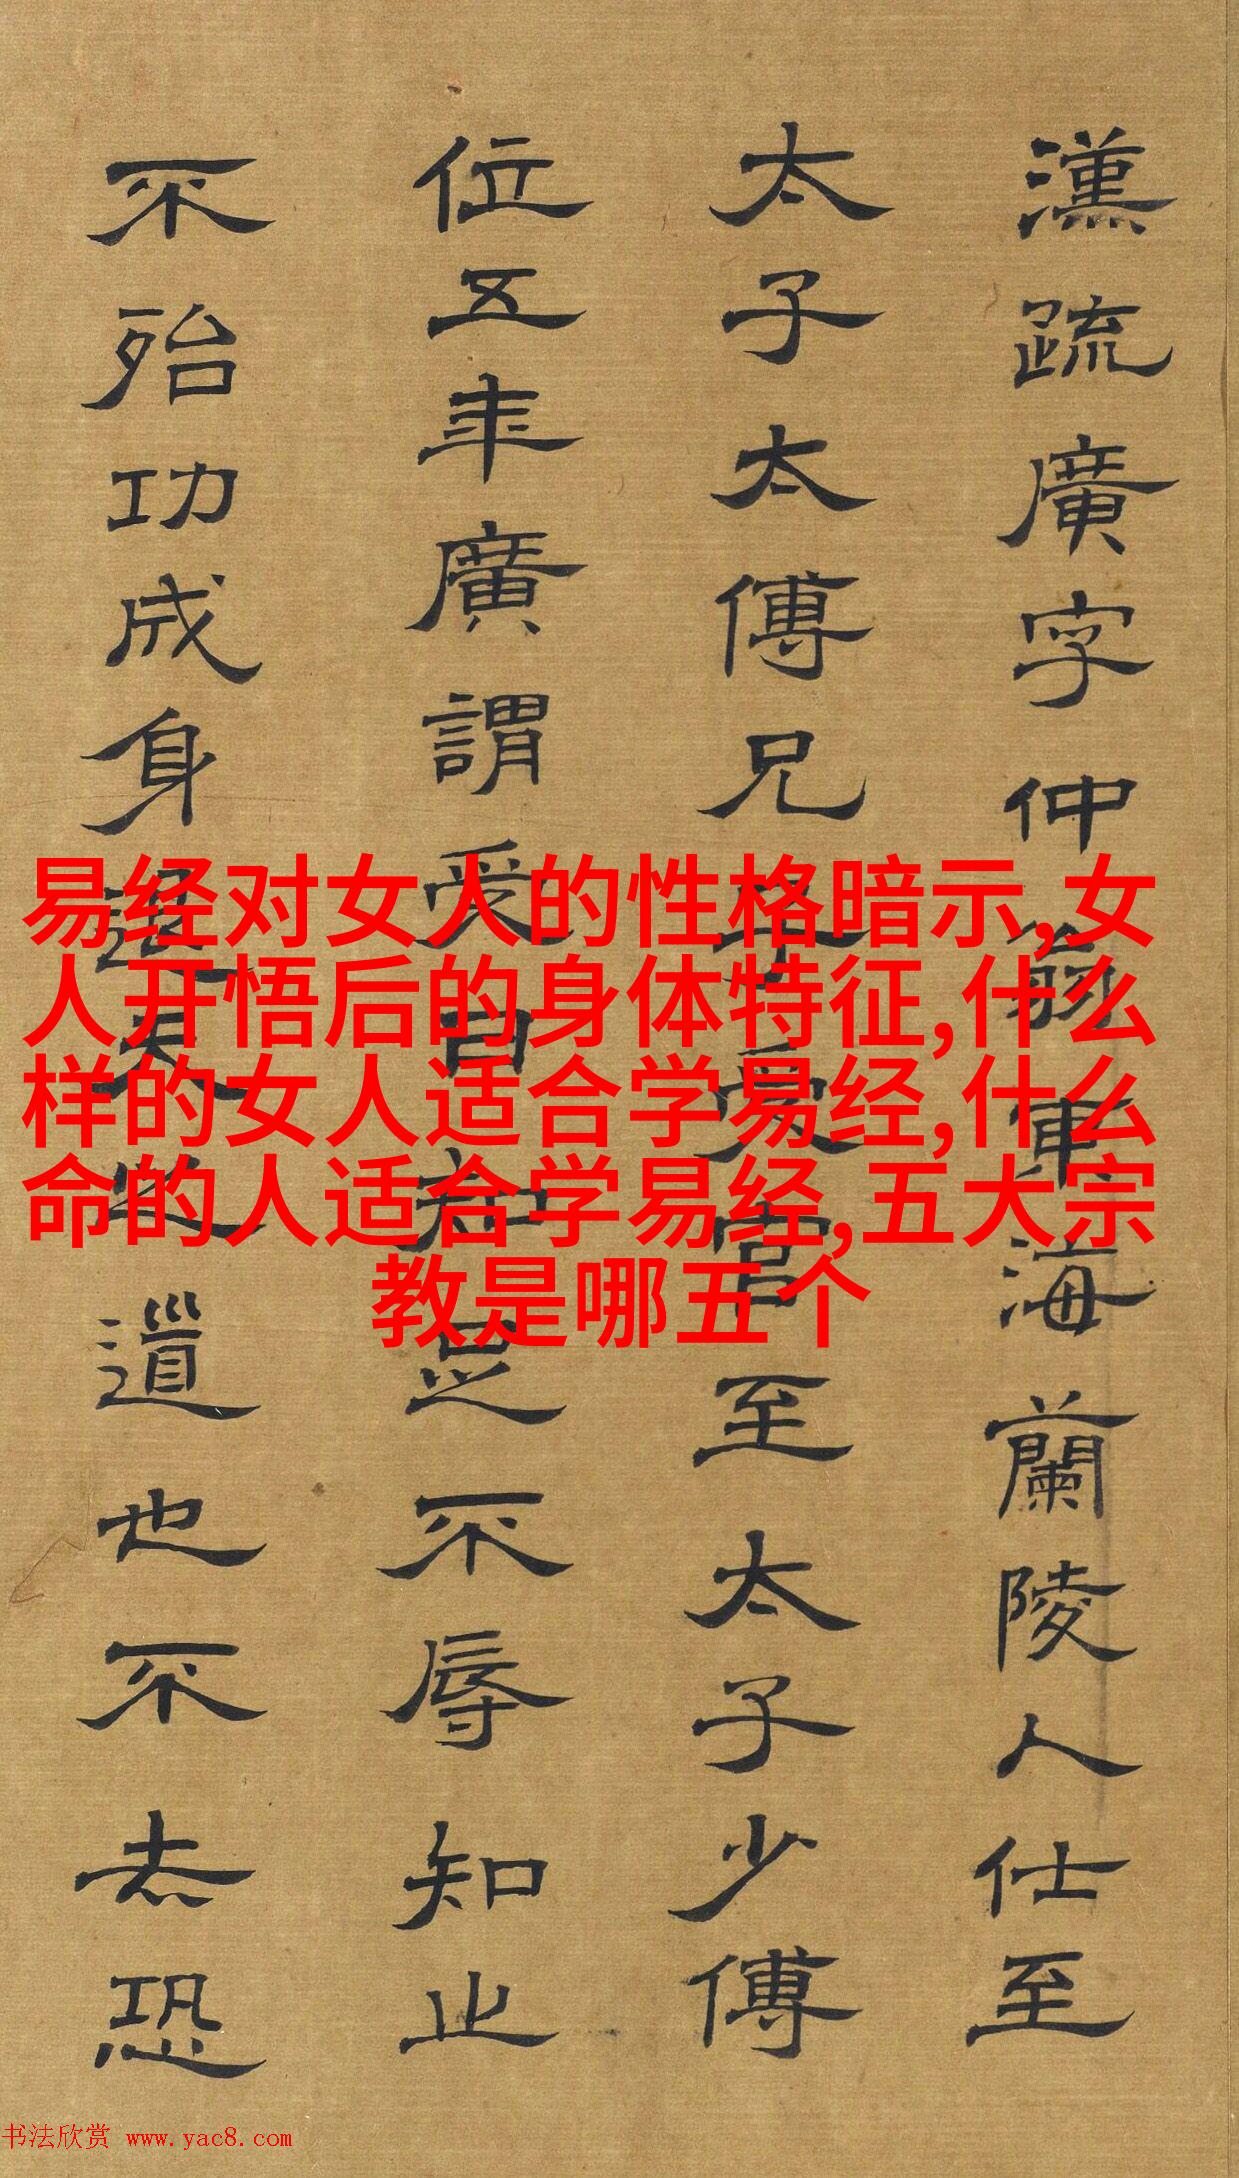 漢疏廣字仲翁東海蘭陵人仕至
太子太傅兄子受官至太子少傅
位五年廣謂受曰知足不辱知止
不殆功成身退天之道也不去恐
易经对女人的性格暗示,女
人开悟后的身体特征,什么
样的女人适合学易经,什么
命的人适合学易经,五大宗
教是哪五个
书法欣赏 www.yac8.com